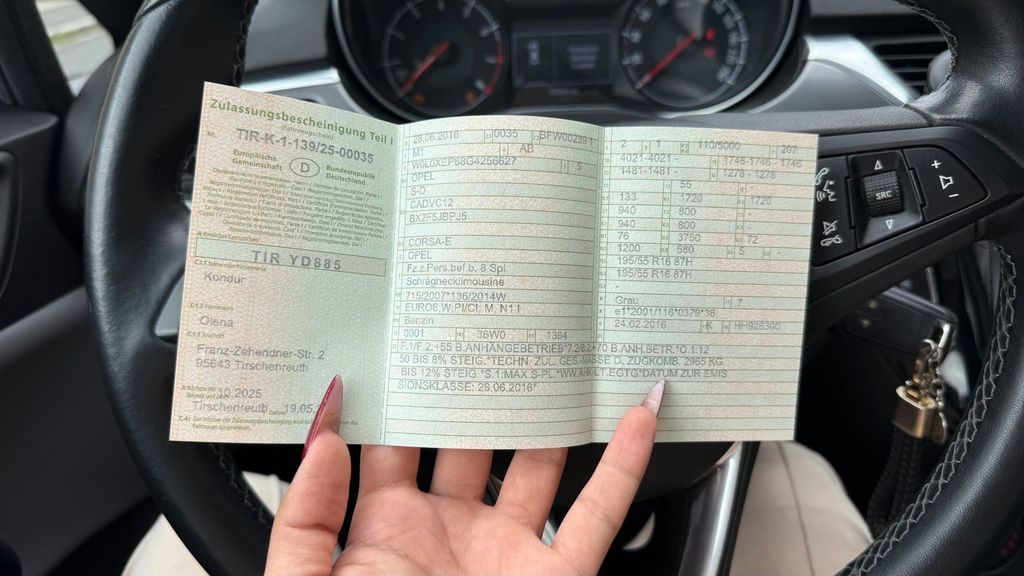 Zulassungsbescheinigung Teil I
(Fahrzeugschein)
Nr. TIR-K-1-139/25-00035
Europäische Gemeinschaft D Bundesrepublik Deutschland
TIR YD885
Kondur
Olena
Franz-Zehendner-Str. 2
95643 Tirschenreuth
10.2025
Tirschenreuth 19.05.
28.06.2016 0035
M1 AB
5
OPEL
S-D
CADVC12
BX2F5JBPJ5
CORSA-E
OPEL
Fz.z.Pers.bef.b. 8 Spl.
Schräghecklimousine
715/2007*136/2014W
EURO6;W;PI/CI; M, N1 I
Benzin
0001 36W0 1364
F.1/F.2:+55 B.ANHÄNGEBETRIEB*7.2/8.2+70 B.ANH.BETR.*O.1:12
50 BIS 8% STEIG.*TECHN. ZUL. GES.MASSE D. ZUGKOMB. 2965 KG
BIS 12% STEIG.*S.1:MAX.S-PL.*WW.AHK LT.EGTG*DATUM ZUR EMIS
SIONSKLASSE: 28.06.2016*
2 1 110/5000 207
4021-4021 - 1746-1746 - 1746
1481-1481 - 1278 - 1278
- 55 -
133 1720 1720
940 800 -
940 800 -
76 3750 72
1200 580 5 -
195/55 R16 87H
195/55 R16 87H
-
Grau 7
e1*2001/116*0379*36
24.02.2016 K
SRC